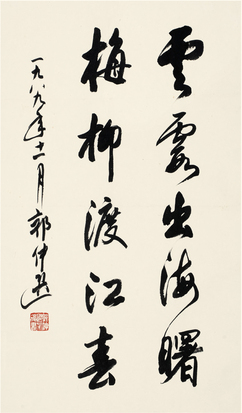 雲霞出海曙
梅柳渡江春
一九八九年十一月郭仲選